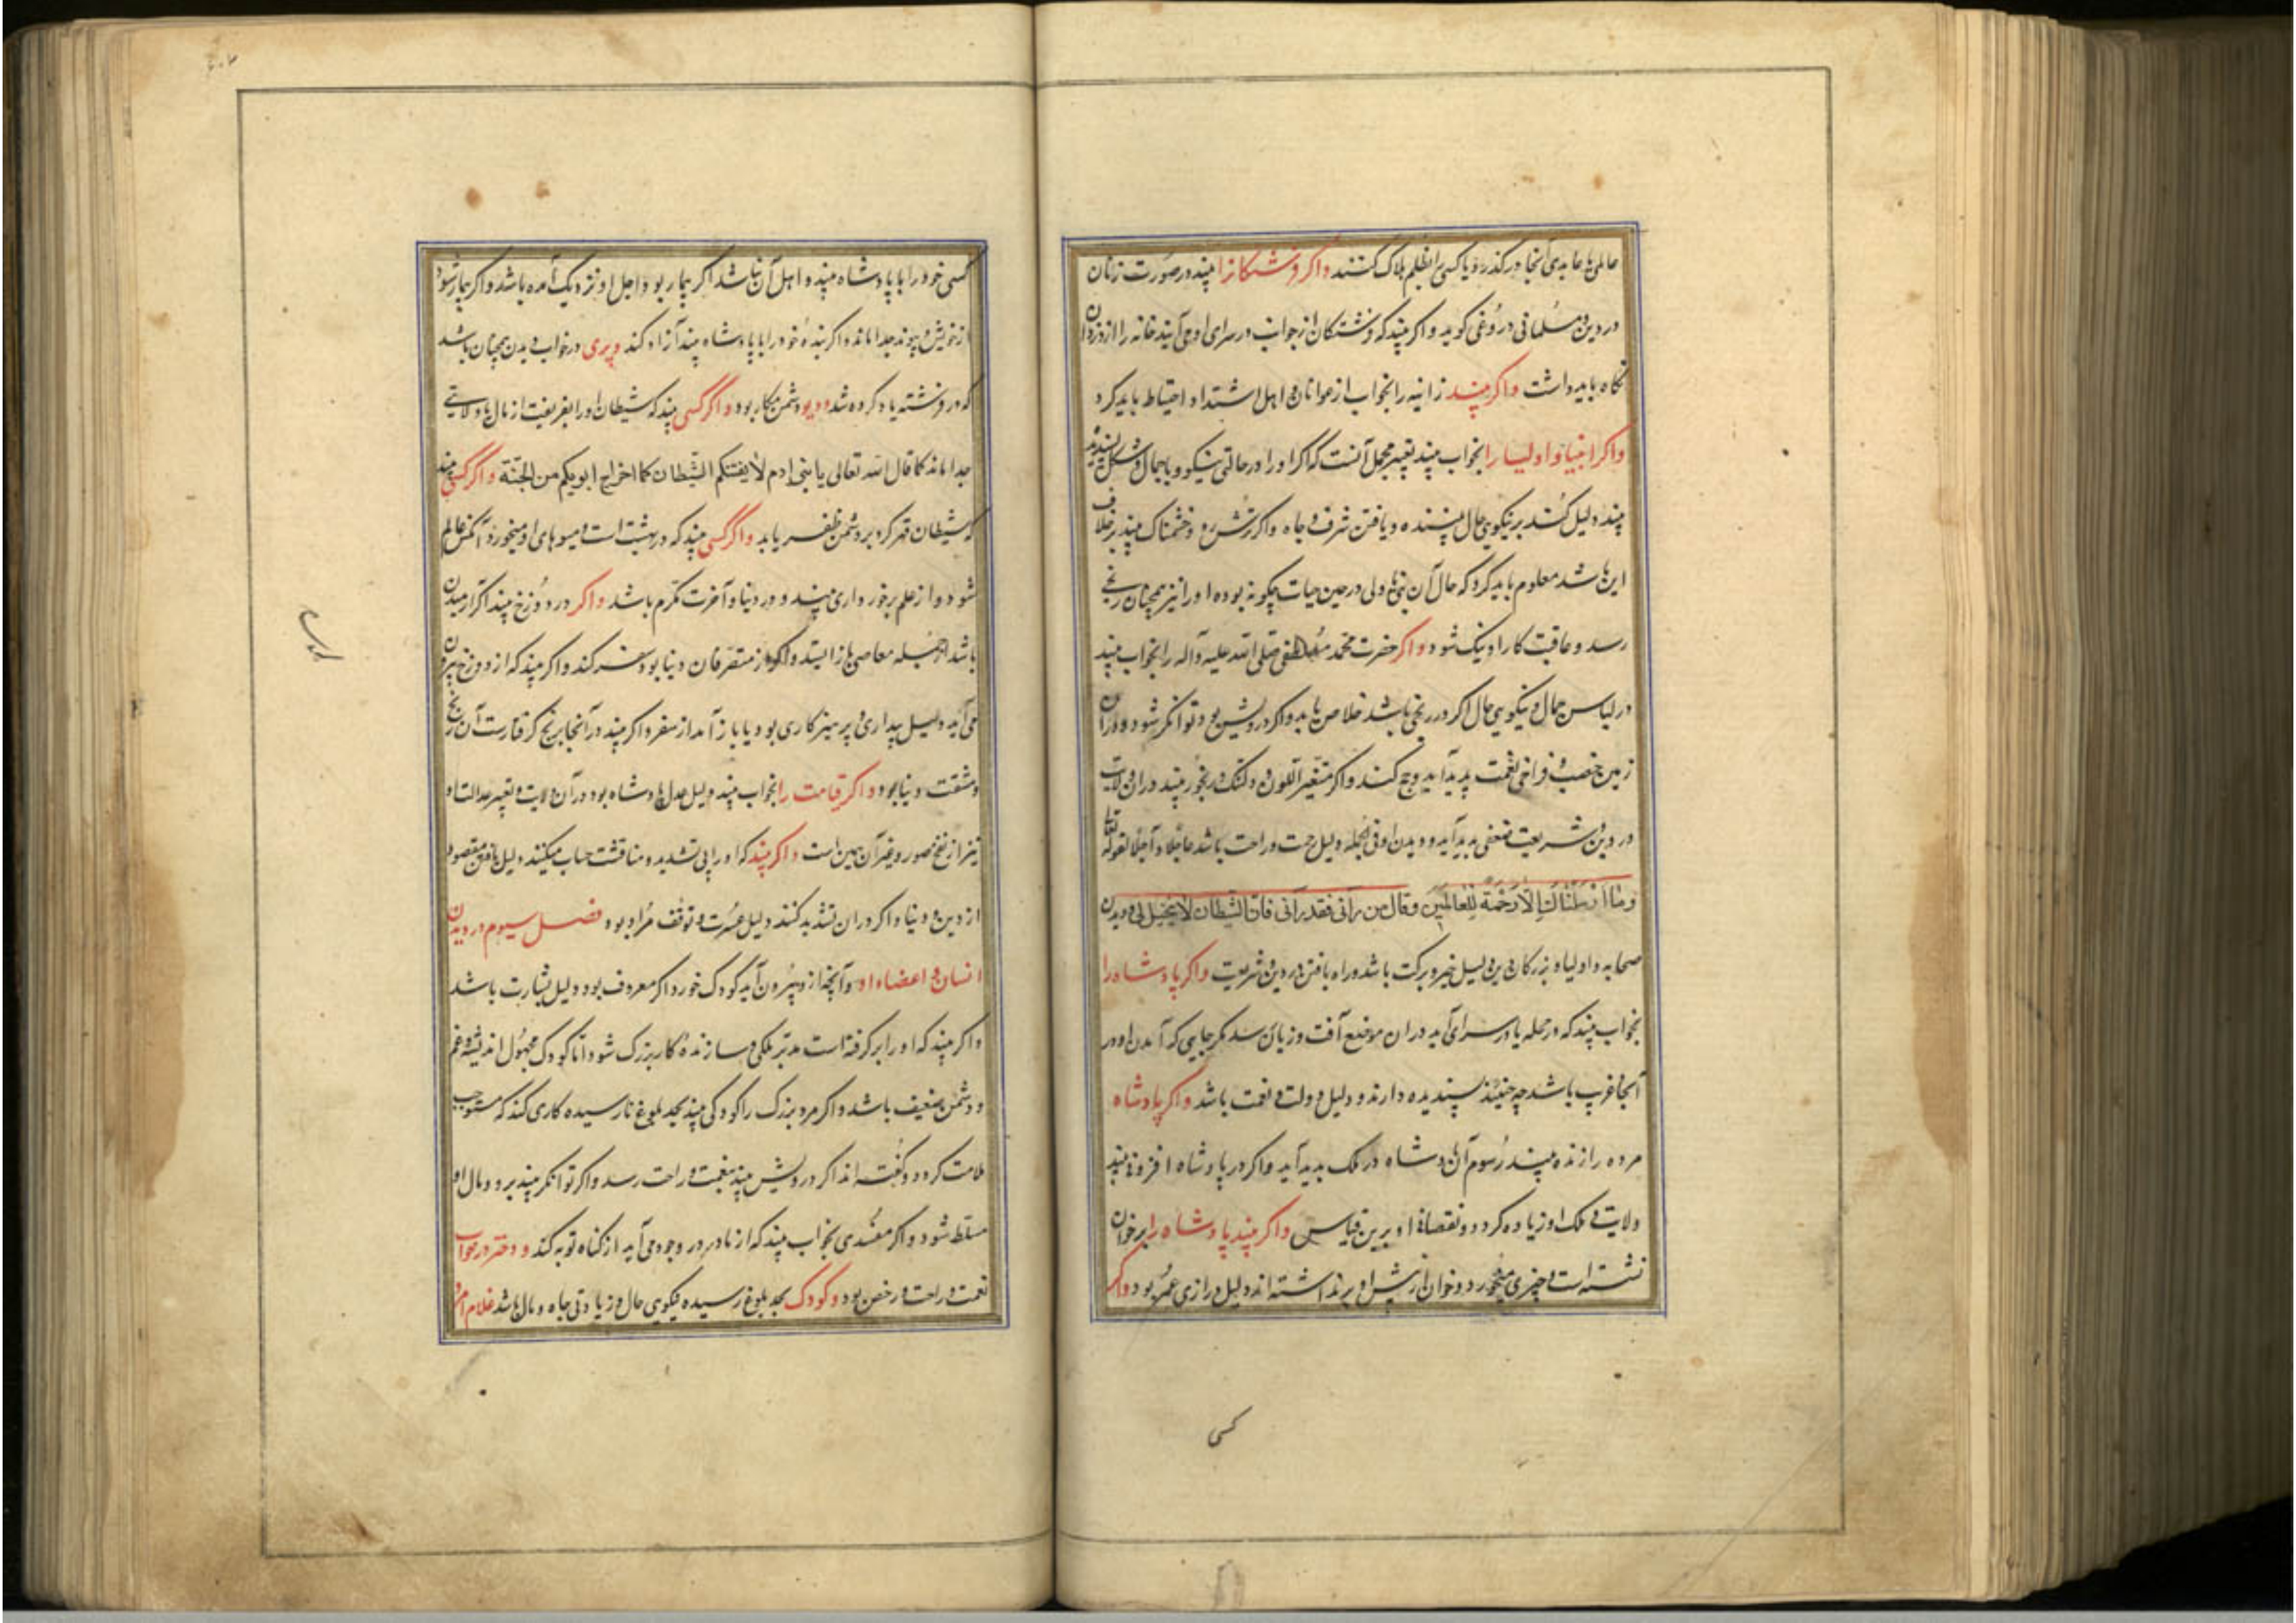 عالمی یا عابدی آنجا در گذرد و یا کسی را بظلم هلاک کنند واکر فرشتکانرا بیند در صورت زنان
در دین و مسلمانی دروغی کوید واکر بیند که فرشتکان از جوانب در سرای او می آیند خانه را از دزدان
نکاه باید داشت واکر بیند زبانیه را بخواب از عوانان و اهل استبداد احتیاط باید کرد
واکر انبیا و اولیا را بخواب بیند تعبیر مجمل آنست که اکر او را در حالتی نیکو و با جمال و شکل پسندیده
بیند دلیل کند بر نیکویی حال بیننده و یافتن شرف و جاه واکر ترش رو و خشمناک بیند بر خلاف
این باشد معلوم باید کرد که حال آن نبی یا ولی در حین حیات چکونه بوده او را نیز همچنان رنجی
رسد و عاقبت کار او نیک شود واکر حضرت محمد مصطفی صلی الله علیه وآله را بخواب بیند
در لباس جمال و نیکویی حال اکر در رنجی باشد خلاص یابد واکر درویش بود توانکر شود و در آن
زمین خصب و فراخی نعمت پدید آید و حج کند واکر متغیر اللون و دلتنک و رنجور بیند در ان ولایت
در دین و شریعت ضعفی پدید آید و دیدن او فی الجمله دلیل رحمت و راحت باشد عاجلا و آجلا لقوله تعالی
وما ارسلناک الا رحمة للعالمین وقال من رآنی فقد رآنی فان الشیطان لا یتخیل بی و دیدن
صحابه و اولیا و بزرکان دین دلیل خیر و برکت باشد و راه یافتن در دین و شریعت واکر پادشاه را
بخواب بیند که در محله یا در سرای آید در ان موضع آفت و زیان رسد مکر جایی که آمدن او در
آنجا غریب باشد چه حینئذ پسندیده دارند و دلیل دولت و نعمت باشد واکر پادشاه
مرده را زنده بیند رسوم آن پادشاه در ملک پدید آید واکر در پادشاه افزونی بیند
ولایت و ملک او زیاده کردد و نقصان او برین قیاس واکر بیند پادشاه را بر خوان
نشسته است و چیزی میخورد و خوان از پیش او بر نداشته اند دلیل درازی عمر بود واکر
کسی
کسی خود را با پادشاه بیند و اهل آن نباشد اکر بیمار بود اجل او نزدیک آمده باشد واکر بیمار نبود
از خویش و پیوند جدا ماند واکر بنده خود را با پادشاه بیند آزاد کند و پری در خواب دیدن همچنان باشد
که در فرشته یاد کرده شد و دیو دشمن مکار بود واکر کسی بیند که شیطان او را بفریفت از مال یا ولایتی
جدا ماند کما قال الله تعالی یا بنی ادم لا یفتننکم الشیطان کما اخرج ابویکم من الجنة واکر کسی بیند
که شیطان قهر کرد بر دشمن ظفر یابد واکر کسی بیند که در بهشت است و میوهای او میخورد آنکس عالم
شود و از علم برخورداری بیند و در دنیا و آخرت مکرم باشد واکر در دوزخ بیند
باشد از جمله معاصی باز ایستد واکر از متصرفان دنیا بود سفر کند واکر بیند که از دوزخ بیرون
می آید دلیل بیداری و پرهیزکاری بود یا باز آمدن از سفر واکر بیند در آنجا برنج کرفتارست آن رنج
و مشقت دنیا بود واکر قیامت را بخواب بیند دلیل عدل پادشاه بود در آن ولایت و تعبیر عدالت او
نیز از نفخ صور و غیر آن همین است واکر بیند که او را بی تشدید و مناقشت حساب میکنند دلیل یافتن مقصود
از دین و دنیا واکر در ان تشدید کنند دلیل عسرت و توقف مراد بود فصل سیوم در دیدن
انسان و اعضاء او وآنچه از و بیرون آید کودک خورد اکر معروف بود دلیل بشارت باشد
واکر بیند که او را بر کرفته است مدبر ملکی و سازنده کار بزرک شود اما کودک مجهول اندیشه و غم
و دشمن ضعیف باشد واکر مرد بزرک را کودکی بیند بحد بلوغ نارسیده کاری کند که مستوجب
ملامت کردد و کفته اند اکر درویش بیند بنعمت و راحت رسد واکر توانکر بیند برو و مال او
مسلط شود واکر مفسدی بخواب بیند که از مادر در وجود می آید از کناه توبه کند و دختر در خواب
نعمت و راحت و رخص بود و کودک بحد بلوغ رسیده نیکویی حال و زیادتی جاه و مال باشد غلام